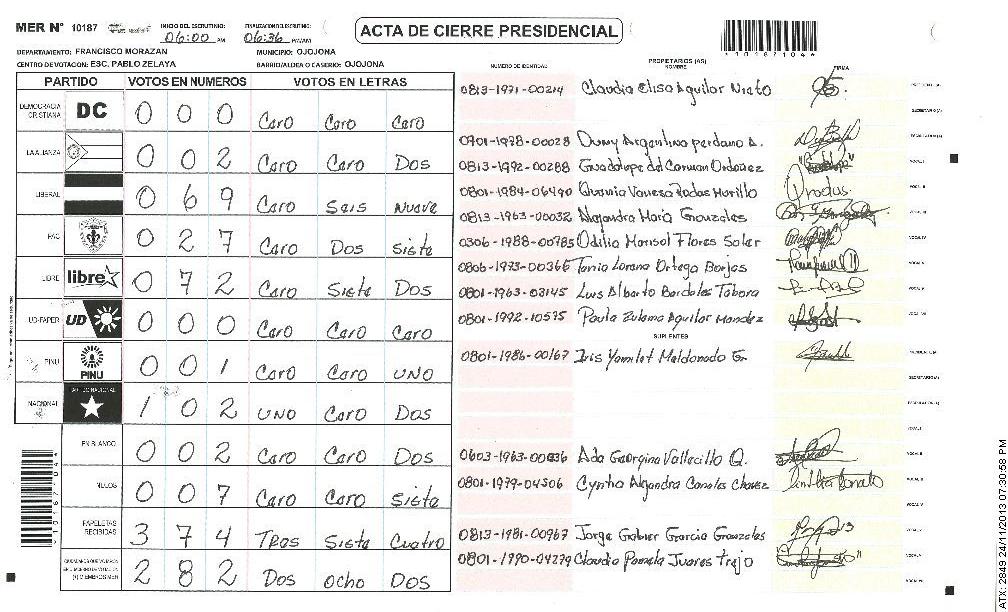 MER Nº 10187 INICIO DEL ESCRUTINIO: 06:00 AM FINALIZACION DEL ESCRUTINIO: 06:36 PM/AM
ACTA DE CIERRE PRESIDENCIAL
*10187104*
DEPARTAMENTO: FRANCISCO MORAZAN MUNICIPIO: OJOJONA
CENTRO DE VOTACION: ESC. PABLO ZELAYA BARRIO/ALDEA O CASERIO: OJOJONA
NUMERO DE IDENTIDAD PROPIETARIOS (AS) NOMBRE FIRMA
PARTIDO VOTOS EN NUMEROS VOTOS EN LETRAS
DEMOCRACIA CRISTIANA DC 0 0 0 Cero Cero Cero
LA ALIANZA 0 0 2 Cero Cero Dos
LIBERAL 0 6 9 Cero Seis Nueve
PAC 0 2 7 Cero Dos Siete
LIBRE libre 0 7 2 Cero Siete Dos
UD-FAPER UD 0 0 0 Cero Cero Cero
PINU PINU 0 0 1 Cero Cero UNO
NACIONAL PARTIDO NACIONAL 1 0 2 UNO Cero Dos
EN BLANCO 0 0 2 Cero Cero Dos
NULOS 0 0 7 Cero Cero Siete
PAPELETAS RECIBIDAS 3 7 4 Tres Siete Cuatro
2 8 2 Dos ocho Dos
0813-1971-00214 Claudia Elisa Aguilar Nieto PRESIDENTE(A)
SECRETARIO(A)
0901-1978-00028 Argentina perdomo A. ESCRUTADOR(A)
0813-1992-00288 Guadalupe del Carmen Ordoñez VOCAL I
0801-1984-06490 Vanesa Rodas Murillo VOCAL II
0813-1963-00032 Alejandro Mario Gonzales VOCAL III
0306-1988-00785 Odilia Marisol Flores Soler VOCAL IV
0806-1973-00366 Tania Lorena Ortega Borjas VOCAL V
0801-1963-03145 Luis Alberto Bardales Tabora
0801-1992-10595 Paola Zulema Aguilar Mendez
SUPLENTES
0801-1986-00167 Iris Yamilet Maldonado G. PRESIDENTE(A)
SECRETARIO(A)
ESCRUTADOR(A)
VOCAL I
0603-1963-00036 Ada Georgina Vallecillo Q. VOCAL II
0801-1979-04506 Cyntha Alejandra Canales Chavez VOCAL III
0813-1981-00967 Jorge Gabier Garcia Gonzales
0801-1990-04279 Claudia Pamela Juares Trejo
*10187104*
ATX: 2849 24/11/2013 07:30:58 PM